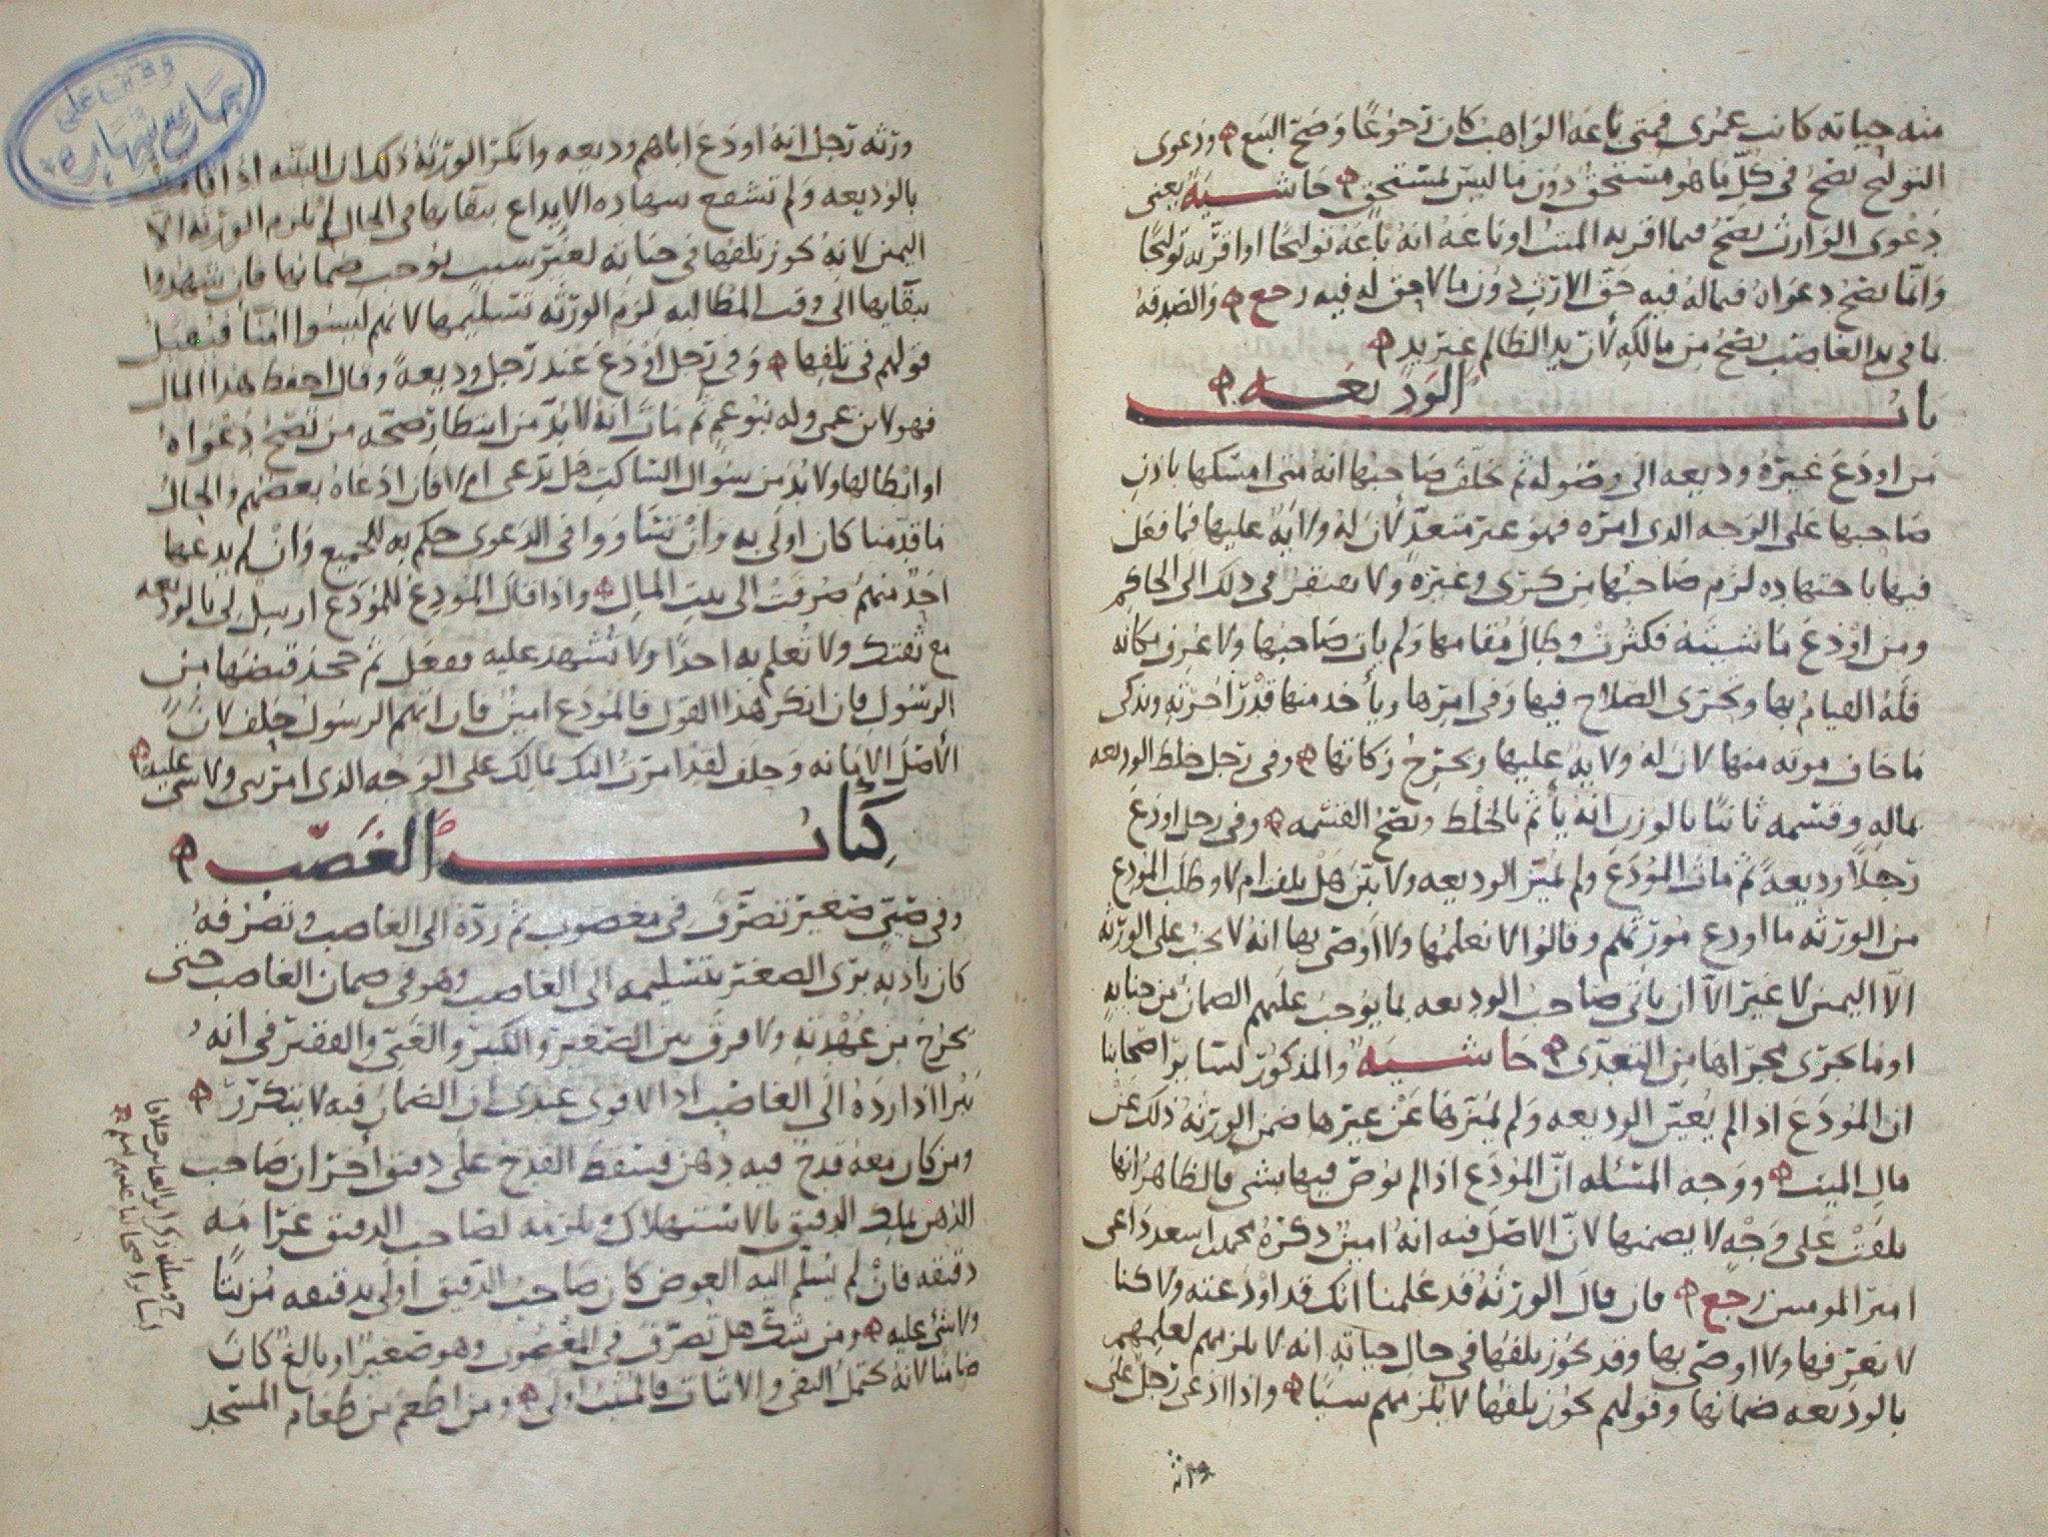 منه حياته كانت عمرى فمتى باعه الواهب كان رجوعا وصح البيع ودعوى
التوليج تصح في كل ما هو مستحق دون ما ليس لمستحق حاشية يعني
دعوى الوارث تصح فيما اقر به الميت او باعه انه باعه توليجا او اقر به توليجا
وانما تصح دعواه فيما له فيه حق الارث دون ما لا حق له فيه رجع والصدقة
ما في يد الغاصب تصح من مالكه لان يد الظالم غير يد
باب الوديعه
من اودع غيره وديعه الى وصوله ثم تخلف صاحبها انه متى امسكها باذن
صاحبها على الوجه الذى امره فهو غير متعد لان له ولايه عليها فما فعل
فيها باجتهاده لزم صاحبها من كرى وغيره ولا يفتقر في ذلك الى الحاكم
ومن اودع ماشيته فكثرت وطال مقامها ولم يات صاحبها ولا عرف مكانه
فله القيام بها وتحرى الصلاح فيها وفي امرها ويأخذ منها قدر اجرته ويذكى
ما خاف موته منها لان له ولايه عليها ويخرج زكاتها وفي رجل خلط الوديعه
بماله وقسمه ثانيا بالوزن انه يأثم بالخلط وتصح القسمه وفي رجل اودع
رجلا وديعه ثم مات المودع ولم تميز الوديعه ولا بين هل تلفت ام لا وطلب المودع
من الورثه ما اودع مورثهم وقالوا لا نعلمها ولا اوصى بها انه لا يجب على الورثه
الا اليمين لا غير الا ان ياتي صاحب الوديعه بما يوجب عليهم الضمان من جنايه
او ما يجرى مجراها من التعدى حاشيه والمذكور لسائر اصحابنا
ان المودع اذا لم يعين الوديعه ولم يميزها عن غيرها ضمن الورثه ذلك من
مال الميت ووجه المسئله ان المودع اذا لم يوص فيها بشي فالظاهر انها
تلفت على وجه لا يضمنها لان الاصل فيه انه امين ذكره محمد بن اسعد داعى
امير المومنين رجع فان قال الورثه قد علمنا انك قد اودعته ولاكنا
لا نعرفها ولا اوصى بها وقد يجوز تلفها في حال حياته انه لا يلزمهم لعلمهم
بالوديعه ضمانها وقولهم يجوز تلفها لا يلزمهم شيا واذا ادعى رجل على
ورثه
ورثه رجل انه اودع اباهم وديعه وانكر الورثه ذلك ان البينه اذا قامت
بالوديعه ولم تشفع شهاده الايداع ببقايها في الحال لم يلزم الورثه الا
اليمين لانه يجوز تلفها في حياته لغير سبب يوجب ضمانها فان شهدوا
ببقايها الى وقت المطالبه لزم الورثه تسليمها لانهم ليسوا امنا فيقبل
قولهم في تلفها وفي رجل اودع عند رجل وديعه وقال احفظ هذا المال
فهو لابن عمى وله بنوعم ثم مات انه لابد من انتظار صحه من تصح دعواه
او ابطالها ولابد من سوال الساكت هل يدعى ام لا فان ادعاه بعضهم والحال
ما قدمنا كان اولى به وان تساووا في الدعوى حكم به للجميع وان لم يدعها
احد منهم صرفت الى بيت المال واذا قال المودع للمودع ارسل لي بالوديعه
مع ثقتك ولا تعلم به احدا ولا تشهد عليه ففعل ثم جحد قبضها من
الرسول فان انكر هذا القول فالمودع امين فان اتهم الرسول حلف لان
الاصل الامانه وحلف لقد امرت اليك بمالك على الوجه الذى امرتني ولا شى عليه
كتاب الغصب
وفي صبى صغير تصرف في مغصوب ثم رده الى الغاصب وتصرفه
كان باذنه برى الصغير بتسليمه الى الغاصب وهو في ضمان الغاصب حتى
يخرج من عهدته ولا فرق بين الصغير والكبير والغنى والفقير في انه
يبرا اذا رده الى الغاصب اذ الاقوى عندى ان الضمان فيه لا يتكرر
ومن كان معه قدح فيه دهن فسقط القدح على دقيق اخر ان صاحب
الدهن يملك الدقيق بالاستهلاك ويلزمه لصاحب الدقيق غرامه
دقيقه فان لم يسلم اليه العوض كان صاحب الدقيق اولى بدقيقه مزيتا
ولا شئ عليه ومن شك هل تصرف في المغصوب وهو صغير او بالغ كان
ضامنا لانه يحتمل النفي والاثبات فالمثبت اولى ومن اطعم من طعام المسجد
وقف على